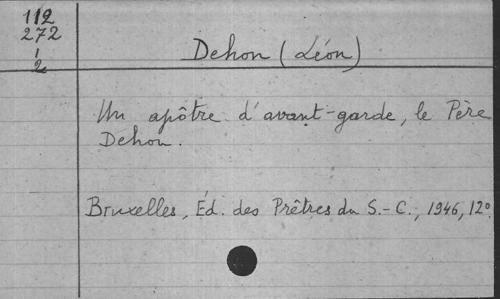 112
272
1
2
Dehon (Léon)
Un apôtre d'avant-garde, le Père
Dehon.
Bruxelles, Éd. des Prêtres du S.-C., 1946, 12°